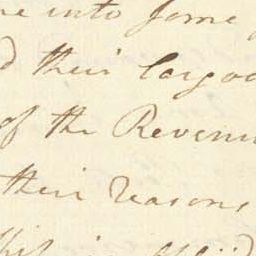 into some
their Cargo
of the Revenu
their reasons